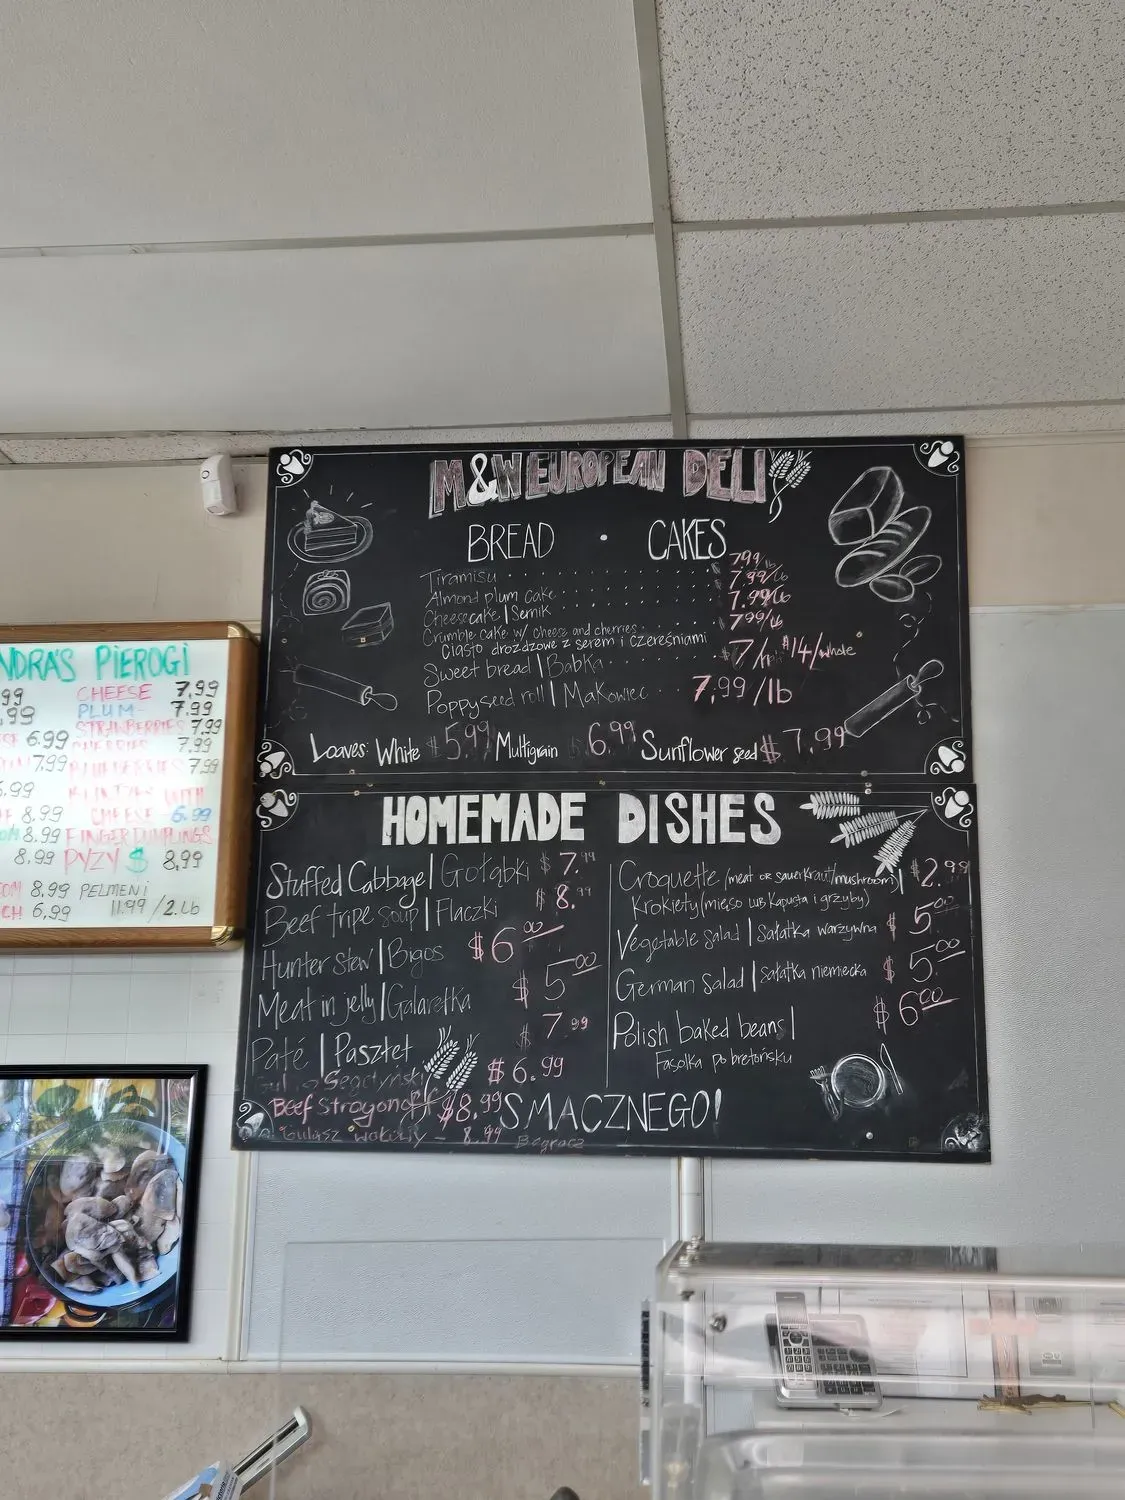 NDRA'S PIEROGI
99 CHEESE 7.99
.99 PLUM- 7.99
STRAWBERRIES 7.99
SE 6.99 CHERRIES 7.99
7.99 BLUEBERRIES 7.99
6.99 BLINTZES WITH
8.99 CHEESE - 6.99
8.99 FINGER DUMPLINGS
8.99 PYZY $ 8.99
8.99 PELMENI
6.99 11.99 / 2.Lb
M&W EUROPEAN DELI
BREAD • CAKES
Tiramisu 7.99/lb
Almond plum cake 7.99/Lb
Cheesecake | Sernik 7.99/Lb
Crumble cake w/ cheese and cherries 7.99/lb
Ciasto drożdżowe z serem i czereśniami
Sweet bread | Babka $7/ $14/whole
Poppyseed roll | Makowiec 7.99/lb
Loaves: White $5.99 Multigrain 6.99 Sunflower seed $7.99
HOMEMADE DISHES
Stuffed Cabbage | Gołąbki $7.99
Beef tripe soup | Flaczki $8.99
Hunter stew | Bigos $6.00
Meat in jelly | Galaretka $5.00
Paté | Pasztet $7.99
Segedyński $6.99
Beef Strogonoff $8.99
Gulasz wołowy - 8.99
Croquette (meat or sauerkraut/mushroom) $2.99
Krokiety (mięso lub kapusta i grzyby)
Vegetable salad | Sałatka warzywna $5.00
German salad | Sałatka niemiecka $5.00
Polish baked beans | $6.00
Fasolka po bretońsku
SMACZNEGO!